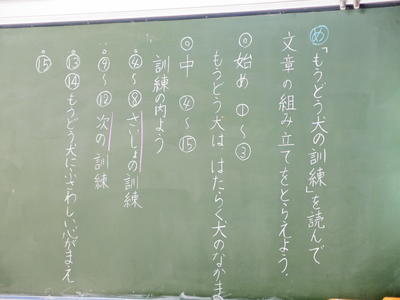 め「もうどう犬の訓練」を読んで
文章の組み立てをとらえよう。
◎始め ①〜③
もうどう犬は はたらく犬のなかま
◎中 ④〜⑮
訓練の内よう
④〜⑧ さいしょの訓練
⑨〜⑫ 次の訓練
⑬⑭もうどう犬にふさわしい心がまえ
⑮